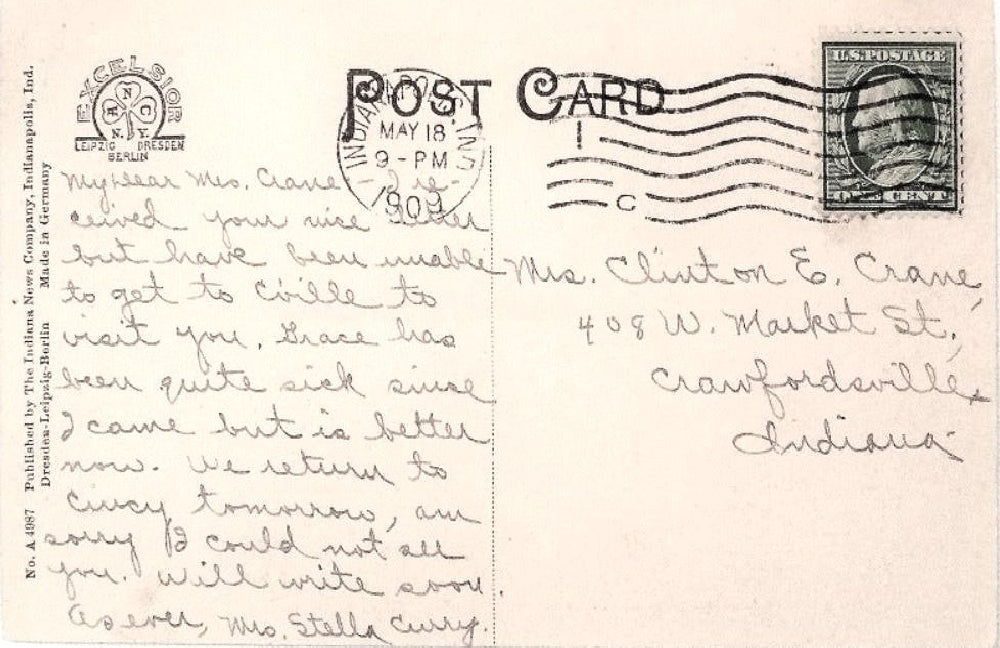 No. A 4987 Published by The Indiana News Company, Indianapolis, Ind.
Dresden-Leipzig-Berlin Made in Germany
EXCELSIOR
N
N.Y.
LEIPZIG DRESDEN
BERLIN
POST CARD
INDIANAPOLIS, IND.
MAY 18
9-PM
1909
1
C
U.S. POSTAGE
ONE CENT
My dear Mrs. Crane - I re-
ceived your nice letter
but have been unable
to get to C'ville to
visit you. Grace has
been quite sick since
I came but is better
now. We return to
Cincy tomorrow, am
sorry I could not see
you. Will write soon.
As ever, Mrs. Stella Curry.
Mrs. Clinton E. Crane,
408 W. Market St.,
Crawfordsville,
Indiana-